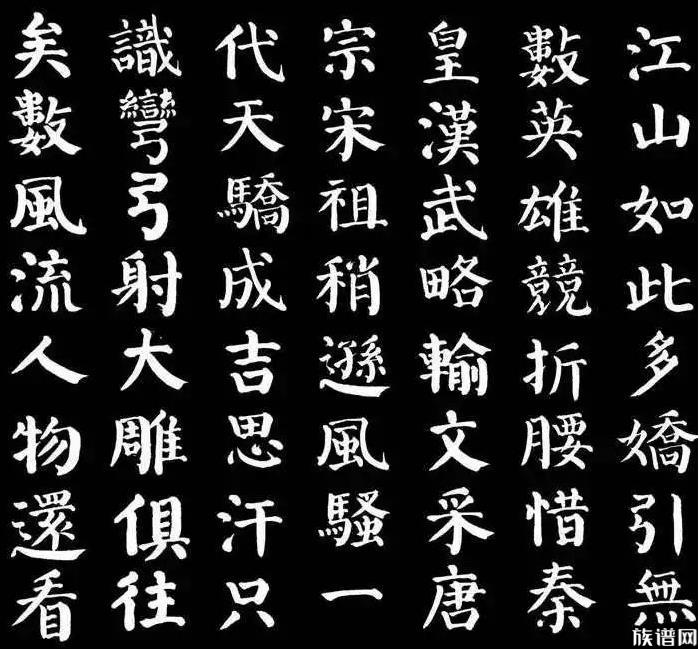 江山如此多嬌引無
數英雄競折腰惜秦
皇漢武略輸文采唐
宗宋祖稍遜風騷一
代天驕成吉思汗只
識彎弓射大雕俱往
矣數風流人物還看
族谱网